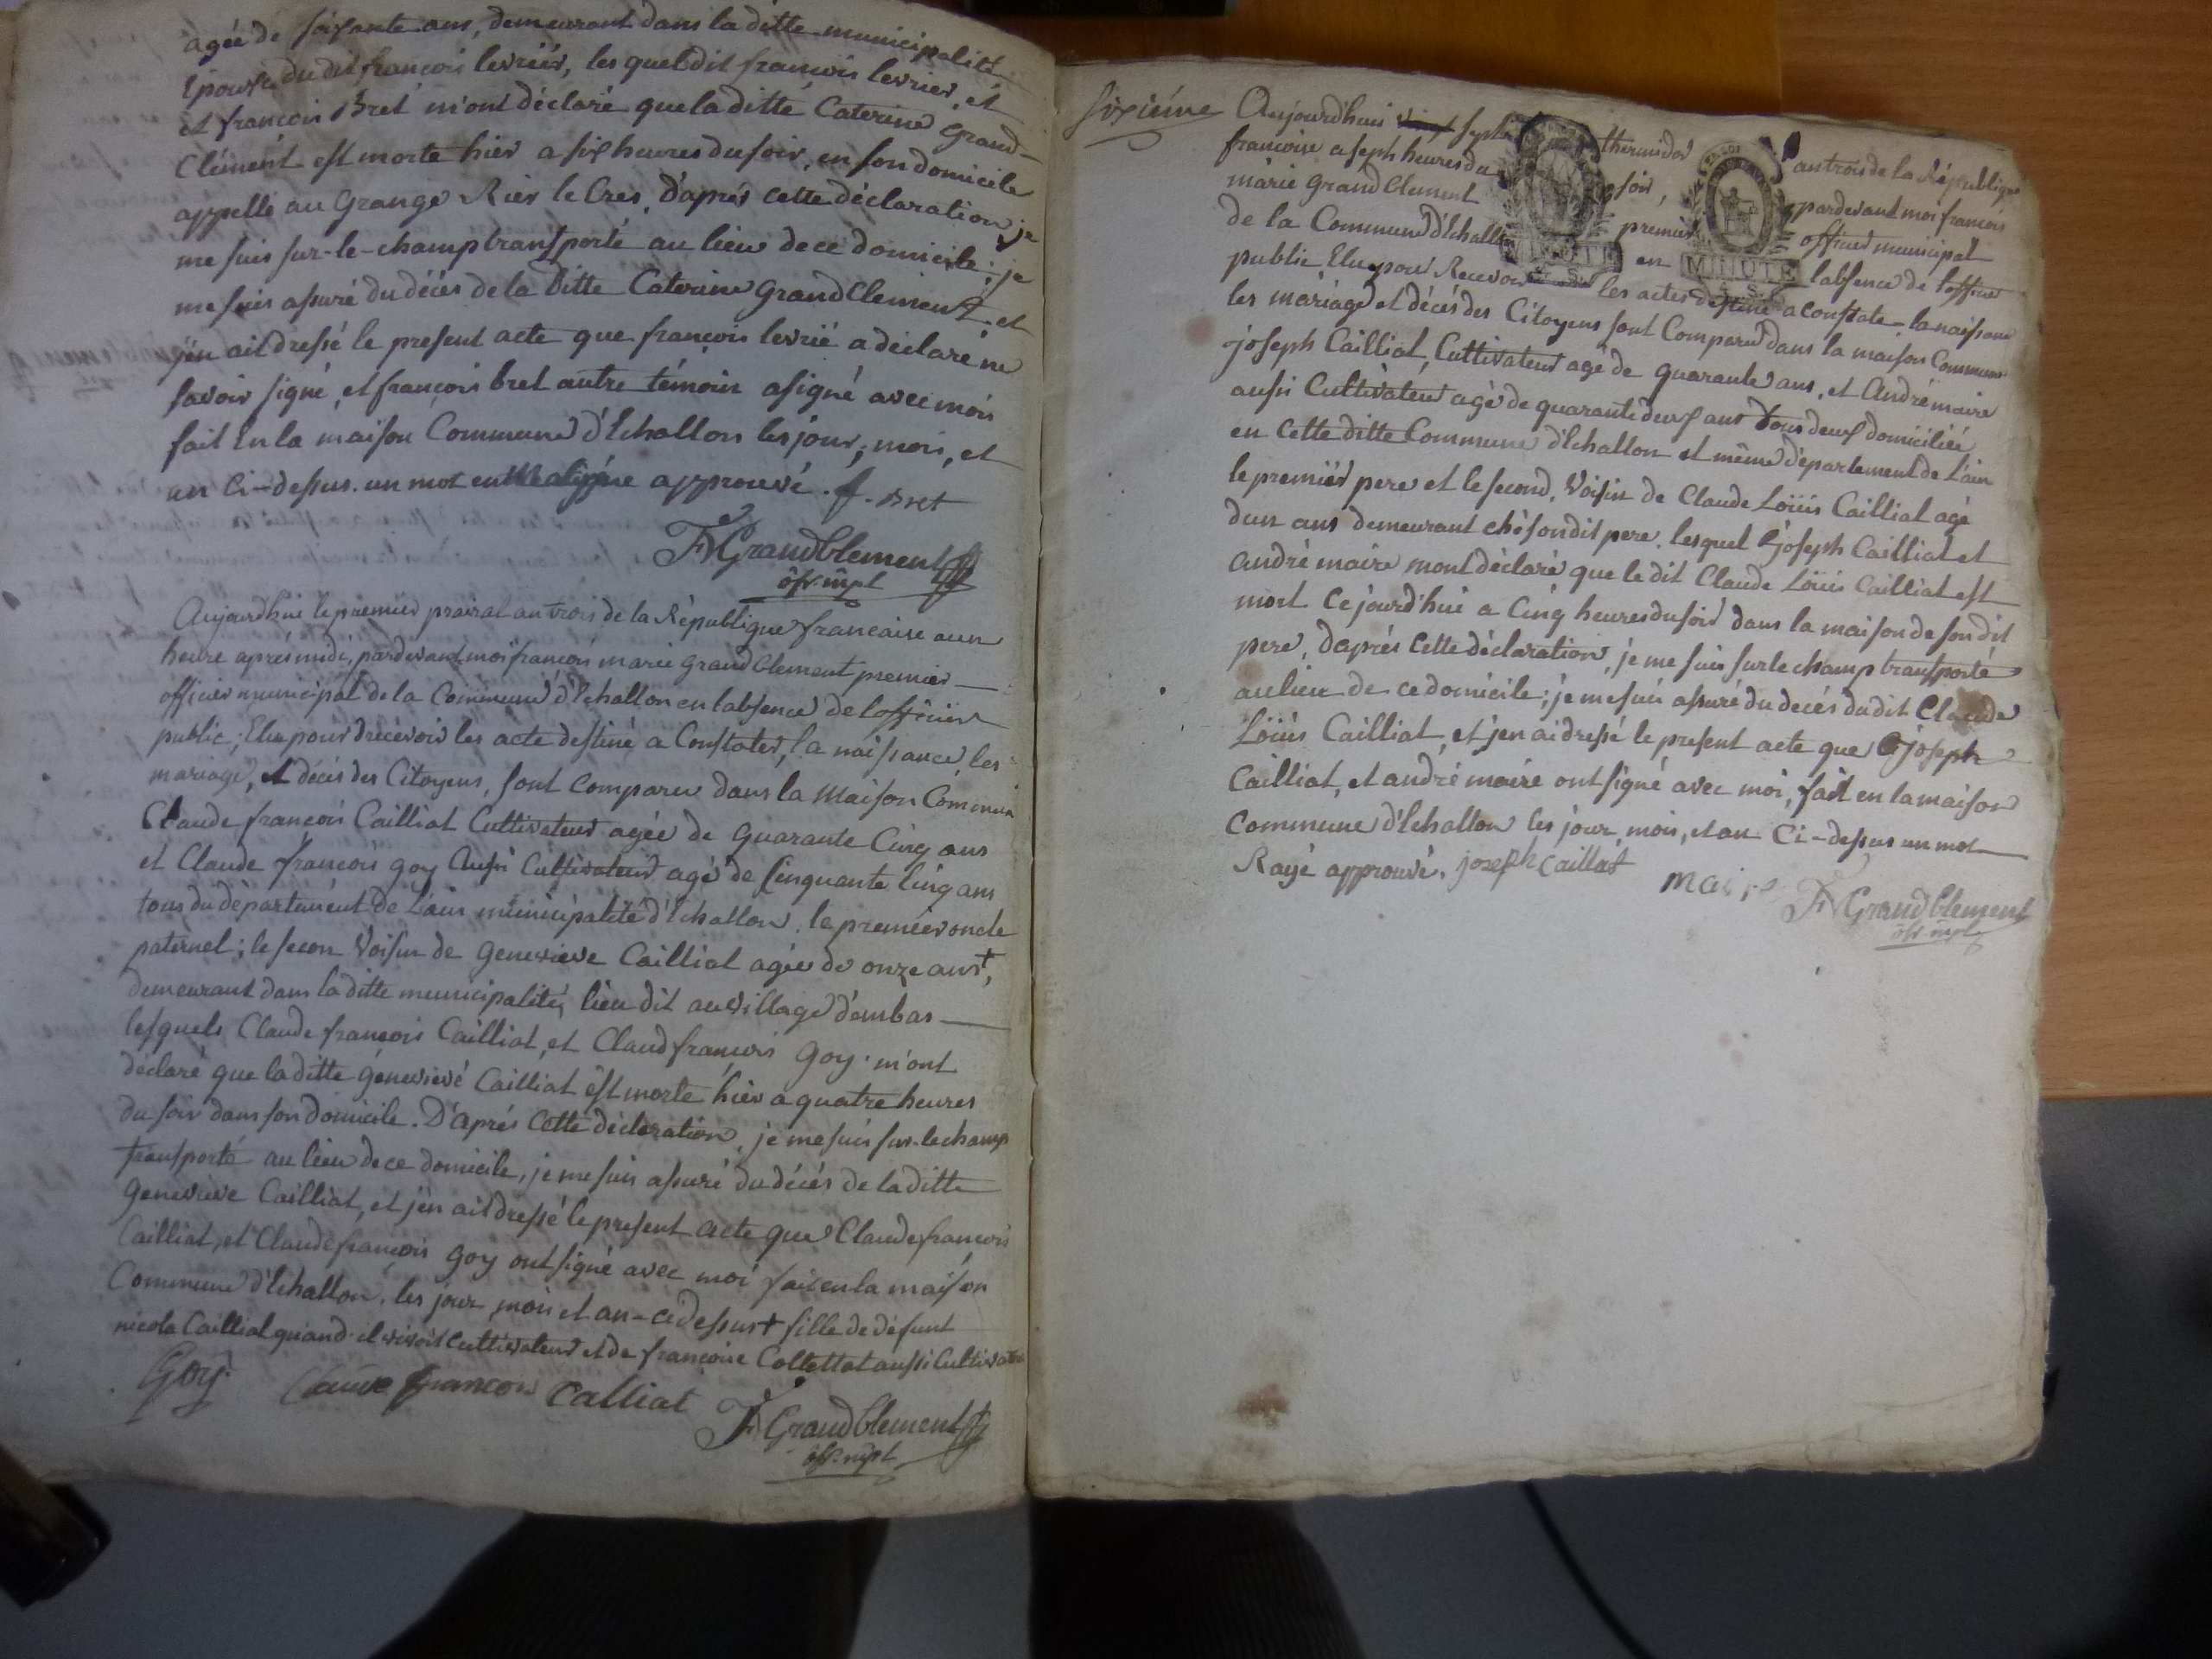 agée de soisante ans, demeurant dans la ditte municipalité
Epouse du dit françois levriér, les quel dit francois levrier, et
et françois Bret m'ont déclaré que la ditte Caterine Grand-
Clément est morte hier a six heures du soir, en son domicile
appellé au Grange Rier le Cres, d'aprés cette déclaration je
me suis sur-le-champ transporté au lieu de ce domicile; je
me suis assuré du décés de la ditte Caterine Grand Clement, et
j'en ait dressé le present acte que françois levrié a déclaré ne
savoir signé, et francois bret autre témoin asigné avec mois
fait En la maison Commune d'Echallon les jour, mois, et
an Ci-dessus. un mot en approuvé. f. Bret
F Grandclement
ofr. mpl
Aujourdhui le premier prairial an trois de la République francaise aun
heure aprés midi, pardevant moi francois marie grand Clement premier
officier municipal de la Commune d'Echallon en labsence de lofficier
public; Elu pour drecevoir les acte destiné a Constater, la naissance, les
mariage, et décés des Citoyens, sont comparu dans la Maison Commun
Claude françois Cailliat Cultivateur agée de Quarante Cinq ans
et Claude françois goy Aussi Cultivateur agé de Cinquante Cinq ans
tous du département de Lain municipalité d'Echallon, le premier oncle
paternel; le secon Voisin de genevieve Cailliat agée de onze ans+,
demeurant dans laditte municipalité, lieu dit au village d'embas
lesquels Claude francois Cailliat, et Claud francois Goy. m'ont
déclaré que laditte génevievé Cailliat est morte hier a quatre heures
du soir dans son domicile. D'aprés Cette déclaration, je me suis sur-lechamp
transporté au lieu de ce domicile, je me suis assuré du décés de laditte
genevieve Cailliat, et j'en ait dressé le present acte que Claude francois
Cailliat, et Claude françois goy ont signé avec moi fait en la maison
Commune d'Echallon, les jour, mois et an-cidessus + fille de défunt
nicola Cailliat quand il vivoit Cultivateur et de francoise Collettat aussi Cultivatri
Goy. Claude francois Calliat F Grandclement
off. mpl
Sixiéme Aujourdhui sept thermidor an trois de la République
francoise a seph heures du soir, pardevant moi francois
marie Grand Clement premier officier municipal
de la Commune d'Echallon en labsence de lofficier
MINUTE MINUTE
public Elu pour Recevoir les actes destiné a constate la naissance
les mariage et décés des Citoyens sont Comparu dans la maison Commune
joseph Cailliat, Cultivateur agé de quarante ans, et André maire
aussi Cultivateur agé de quarante deux ans Tous deux domiciliée
en cette ditte Commune d'Echallon et même département de L'ain
le premier pere et le second, Voisin de Claude Loüis Cailliat agé
dun ans demeurant ché son dit pere. lesquel joseph Cailliat et
André maire mont déclaré que le dit Claude Loüis Cailliat est
mort Ce jourd'hui a Cinq heures du soir dans la maison de son dit
pere, daprés Cette déclaration, je me suis sur le champ transporté
au lieu de ce domicile; je me suis assuré du decés dudit Claude
Loüis Cailliat, et j'en ai dressé le present acte que joseph
Cailliat, et andré maire ont signé avec moi, fait en la maison
Commune d'Echallon les jour mois, et an Ci-dessus un mot
Rayé approuvé. joseph Caillat maire F Grandclement
ofr. mpl